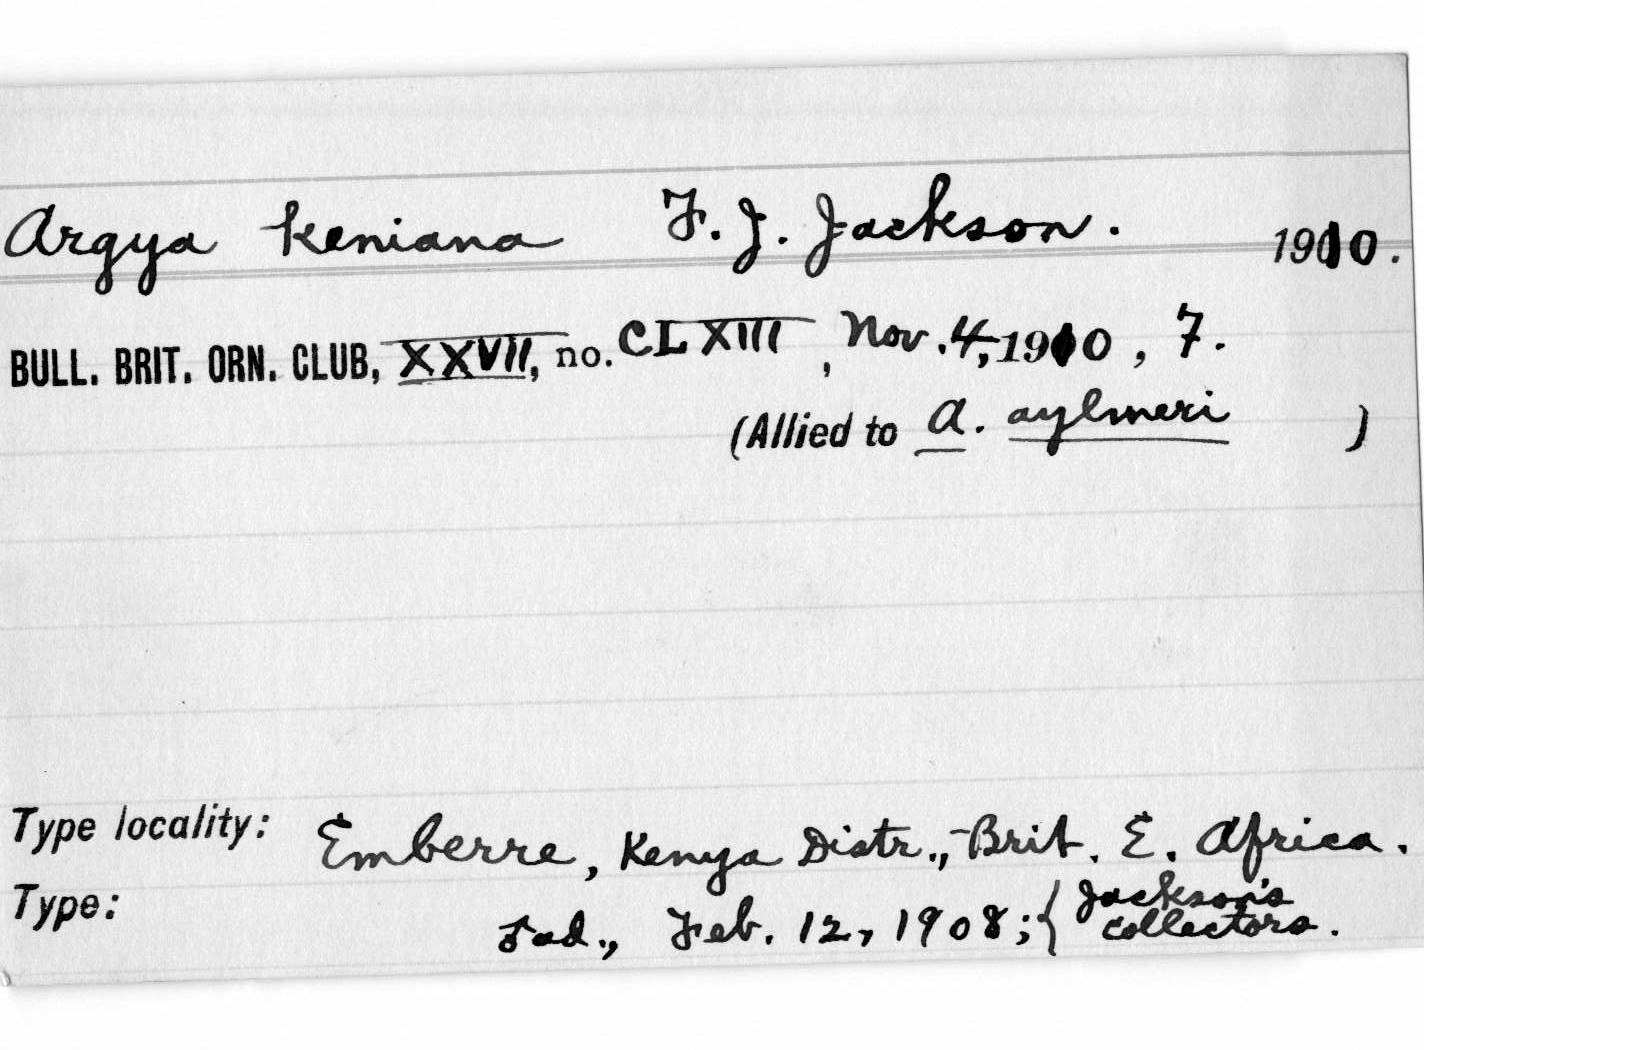 Argya keniana F. J. Jackson. 1910.
BULL. BRIT. ORN. CLUB, XXVII, no. CLXIII, Nov. 4, 1910, 7.
(Allied to A. aylmeri )
Type locality: Emberre, Kenya Distr., Brit. E. Africa.
Type: ad., Feb. 12, 1908; { Jackson's
collectors.